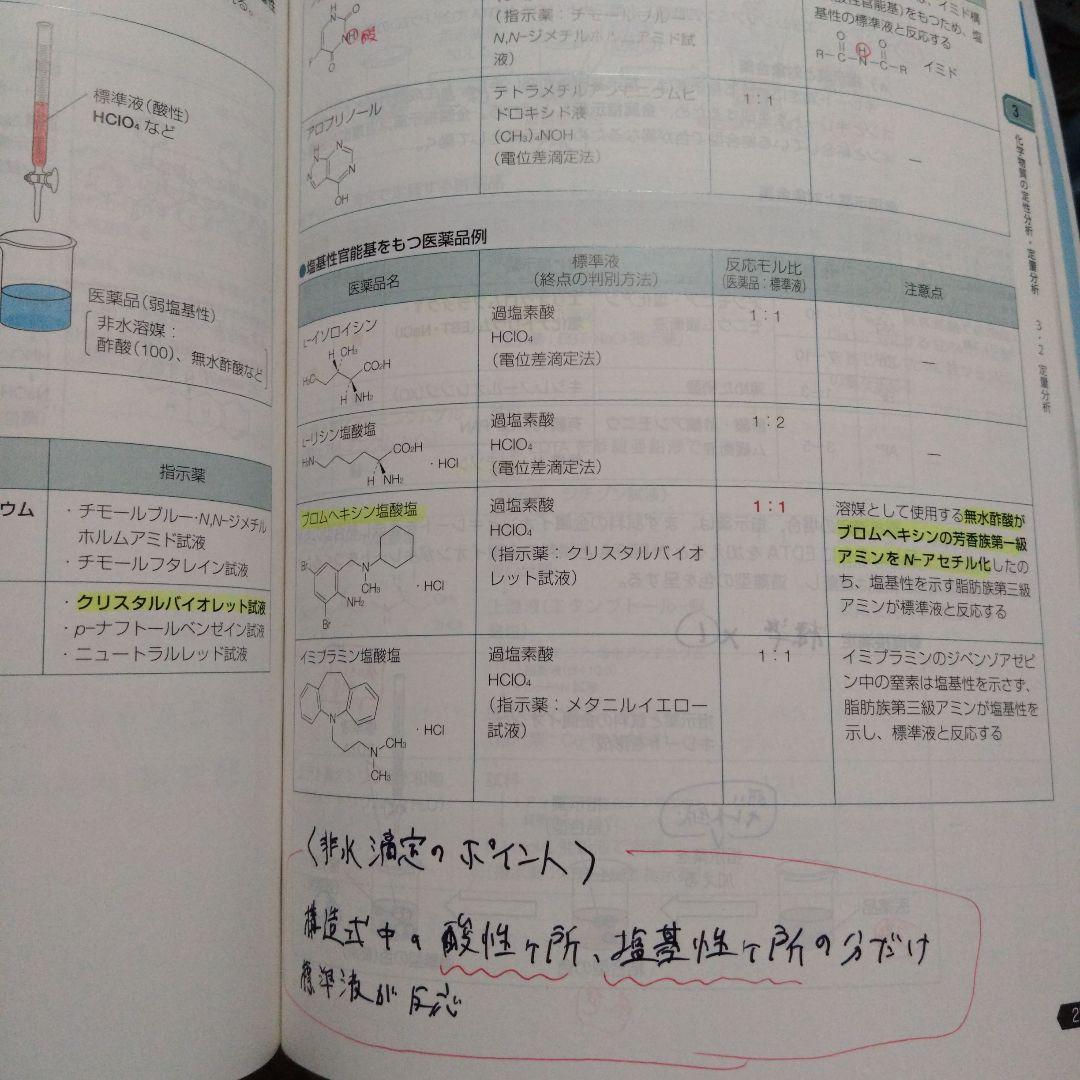 標準液（酸性）
HClO₄など
医薬品（弱塩基性）
非水溶媒：
酢酸（100）、無水酢酸など
指示薬
ウム
・チモールブルー・N,N-ジメチル
ホルムアミド試液
・チモールフタレイン試液
・クリスタルバイオレット試液
・p-ナフトールベンゼイン試液
・ニュートラルレッド試液
H 酸
（指示薬：チモールブルー・
N,N-ジメチルホルムアミド試
液）
、イミド構
酸性官能基）をもつため、塩
基性の標準液と反応する
O H O
R-C-N-C-R イミド
アロプリノール
OH
テトラメチルアンモニウムヒ
ドロキシド液
(CH₃)₄NOH
（電位差滴定法）
1：1
—
3
化学物質の定性分析・定量分析
3・2 定量分析
●塩基性官能基をもつ医薬品例
医薬品名
標準液
（終点の判別方法）
反応モル比
（医薬品：標準液）
注意点
L-イソロイシン
H CH₃
H₃C CO₂H
H NH₂
過塩素酸
HClO₄
（電位差滴定法）
1：1
—
L-リシン塩酸塩
H₂N CO₂H
H NH₂ ・HCl
過塩素酸
HClO₄
（電位差滴定法）
1：2
—
ブロムヘキシン塩酸塩
Br N
CH₃ ・HCl
NH₂
Br
過塩素酸
HClO₄
（指示薬：クリスタルバイオ
レット試液）
1：1
溶媒として使用する無水酢酸が
ブロムヘキシンの芳香族第一級
アミンをN-アセチル化したの
ち、塩基性を示す脂肪族第三級
アミンが標準液と反応する
イミプラミン塩酸塩
N ・HCl
N CH₃
CH₃
過塩素酸
HClO₄
（指示薬：メタニルイエロー
試液）
1：1
イミプラミンのジベンゾアゼピ
ン中の窒素は塩基性を示さず、
脂肪族第三級アミンが塩基性を
示し、標準液と反応する
〈非水滴定のポイント〉
構造式中の酸性ヶ所、塩基性ヶ所の分だけ
標準液が反応
2